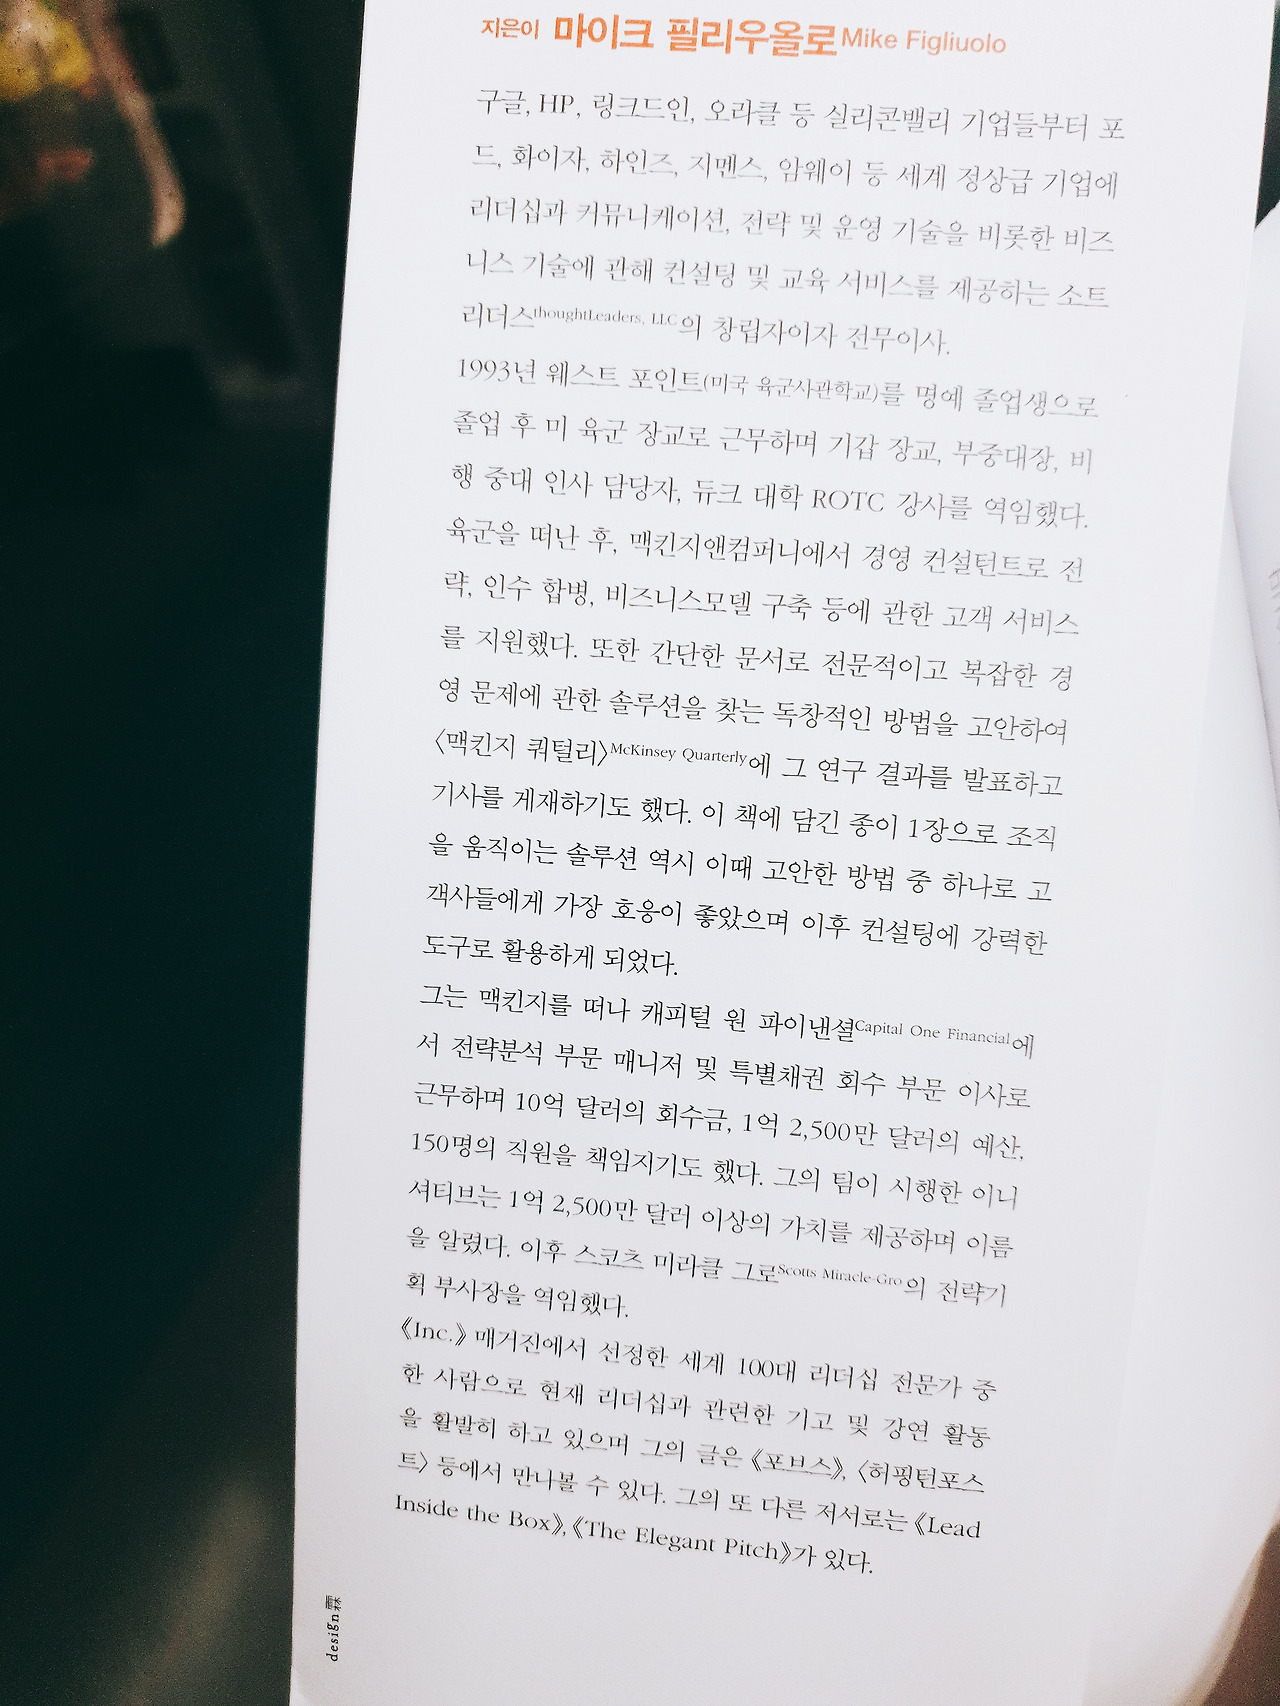 지은이 마이크 필리우올로 Mike Figliuolo
구글, HP, 링크드인, 오라클 등 실리콘밸리 기업들부터 포
드, 화이자, 하인즈, 지멘스, 암웨이 등 세계 정상급 기업에
리더십과 커뮤니케이션, 전략 및 운영 기술을 비롯한 비즈
니스 기술에 관해 컨설팅 및 교육 서비스를 제공하는 소트
리더스thoughtLeaders, LLC의 창립자이자 전무이사.
1993년 웨스트 포인트(미국 육군사관학교)를 명예 졸업생으로
졸업 후 미 육군 장교로 근무하며 기갑 장교, 부중대장, 비
행 중대 인사 담당자, 듀크 대학 ROTC 강사를 역임했다.
육군을 떠난 후, 맥킨지앤컴퍼니에서 경영 컨설턴트로 전
략, 인수 합병, 비즈니스모델 구축 등에 관한 고객 서비스
를 지원했다. 또한 간단한 문서로 전문적이고 복잡한 경
영 문제에 관한 솔루션을 찾는 독창적인 방법을 고안하여
〈맥킨지 쿼털리〉McKinsey Quarterly에 그 연구 결과를 발표하고
기사를 게재하기도 했다. 이 책에 담긴 종이 1장으로 조직
을 움직이는 솔루션 역시 이때 고안한 방법 중 하나로 고
객사들에게 가장 호응이 좋았으며 이후 컨설팅에 강력한
도구로 활용하게 되었다.
그는 맥킨지를 떠나 캐피털 원 파이낸셜Capital One Financial에
서 전략분석 부문 매니저 및 특별채권 회수 부문 이사로
근무하며 10억 달러의 회수금, 1억 2,500만 달러의 예산,
150명의 직원을 책임지기도 했다. 그의 팀이 시행한 이니
셔티브는 1억 2,500만 달러 이상의 가치를 제공하며 이름
을 알렸다. 이후 스코츠 미라클 그로Scotts Miracle-Gro의 전략기
획 부사장을 역임했다.
《Inc.》 매거진에서 선정한 세계 100대 리더십 전문가 중
한 사람으로 현재 리더십과 관련한 기고 및 강연 활동
을 활발히 하고 있으며 그의 글은 《포브스》, 〈허핑턴포스
트〉 등에서 만나볼 수 있다. 그의 또 다른 저서로는 《Lead
Inside the Box》, 《The Elegant Pitch》가 있다.
design霖